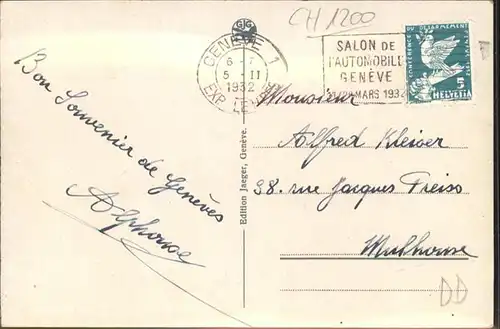 CH 1200
GENÈVE 1
5 - II
1932
EXP. LE
SALON DE
L'AUTOMOBILE
GENÈVE
MARS 1932
CONFÉRENCE DU DÉSARMEMENT
5
HELVETIA
Bon Souvenir de Genèves
Alphonse
Edition Jaeger, Genève.
Monsieur
Alfred Kleiver
38. rue Jacques Preiss
Mulhouse
DD